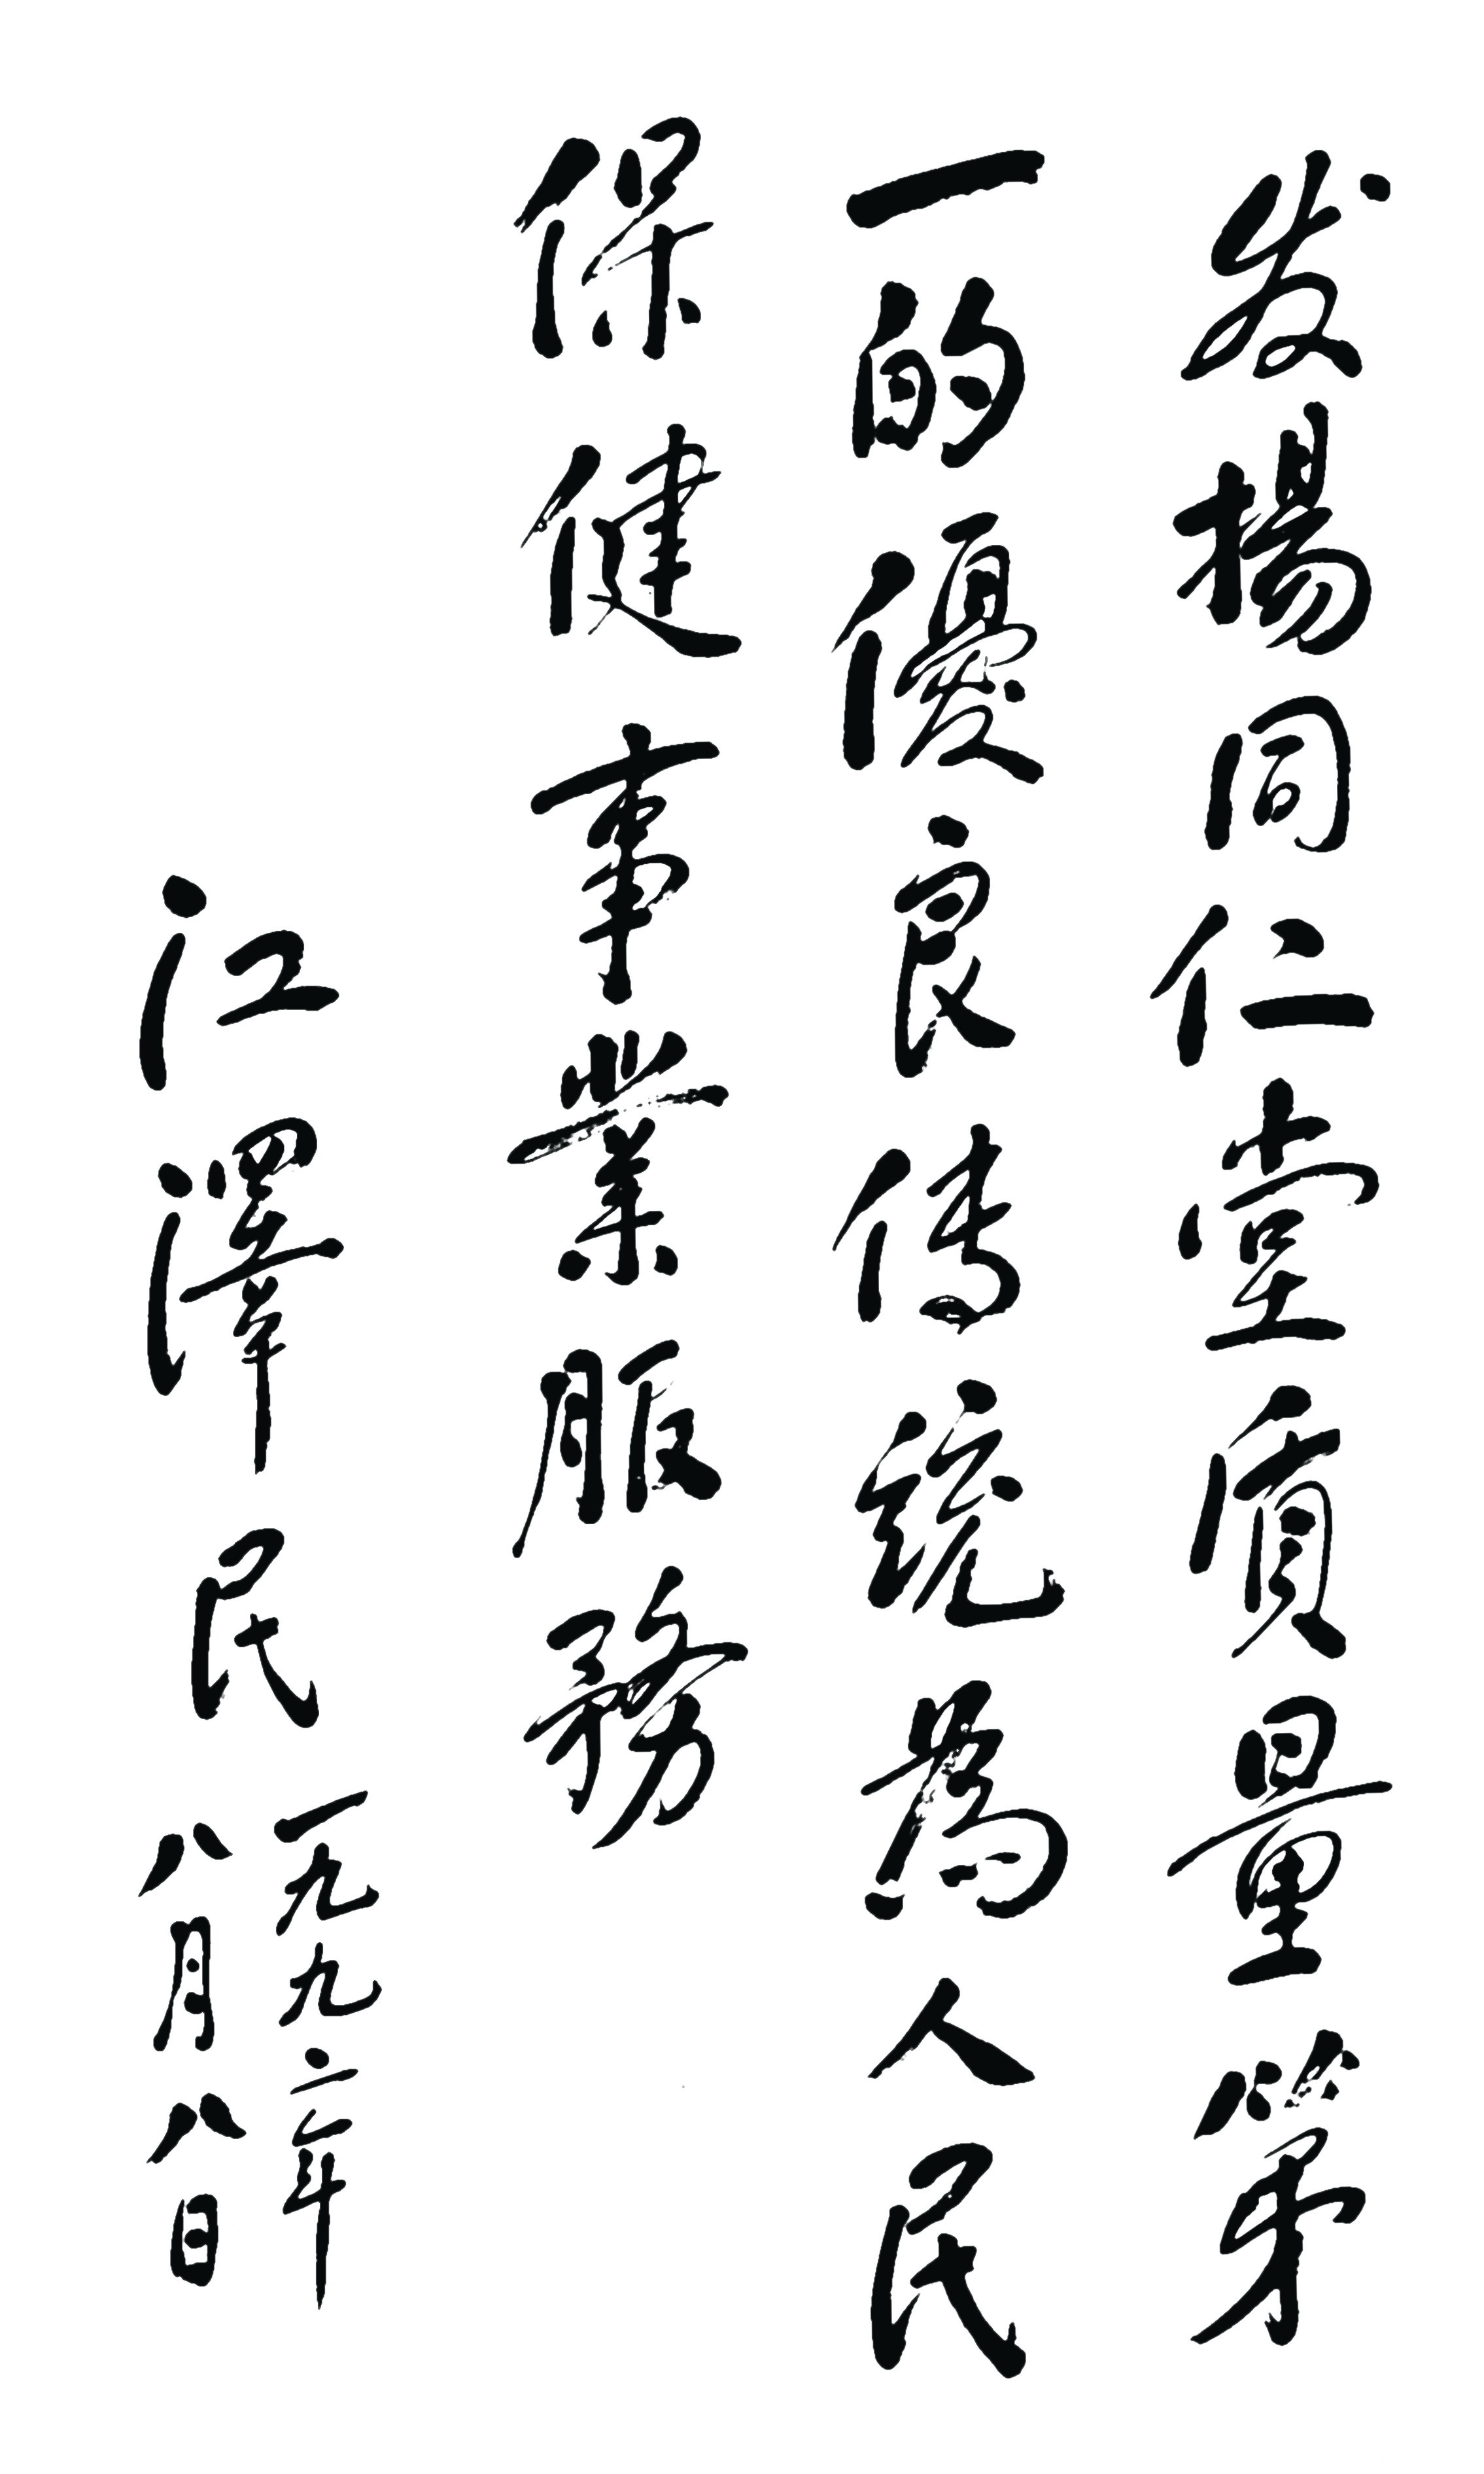 发揚同仁堂质量第
一的優良传統為人民
保健事業服務
江澤民
一九九二年
八月八日